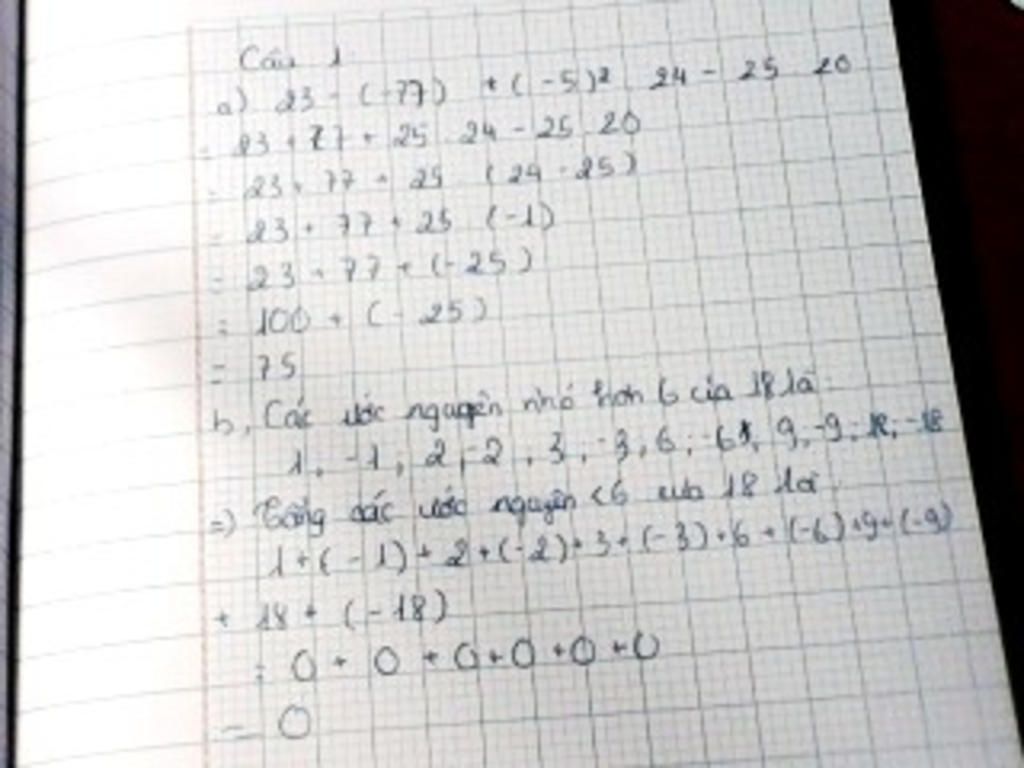 Câu 1
a) 23 - (-77) + (-5)² 24 - 25 20
= 23 + 77 + 25 24 - 25 20
= 23 + 77 + 25 (24 - 25)
= 23 + 77 + 25 (-1)
= 23 + 77 + (-25)
= 100 + (-25)
= 75
b, Các ước nguyên nhỏ hơn 6 của 18 là:
1, -1, 2, -2, 3, -3, 6, -6, 9, -9, 18, -18
=) Tổng các ước nguyên <6 của 18 là
1 + (-1) + 2 + (-2) + 3 + (-3) + 6 + (-6) + 9 + (-9)
+ 18 + (-18)
= 0 + 0 + 0 + 0 + 0 + 0
= 0